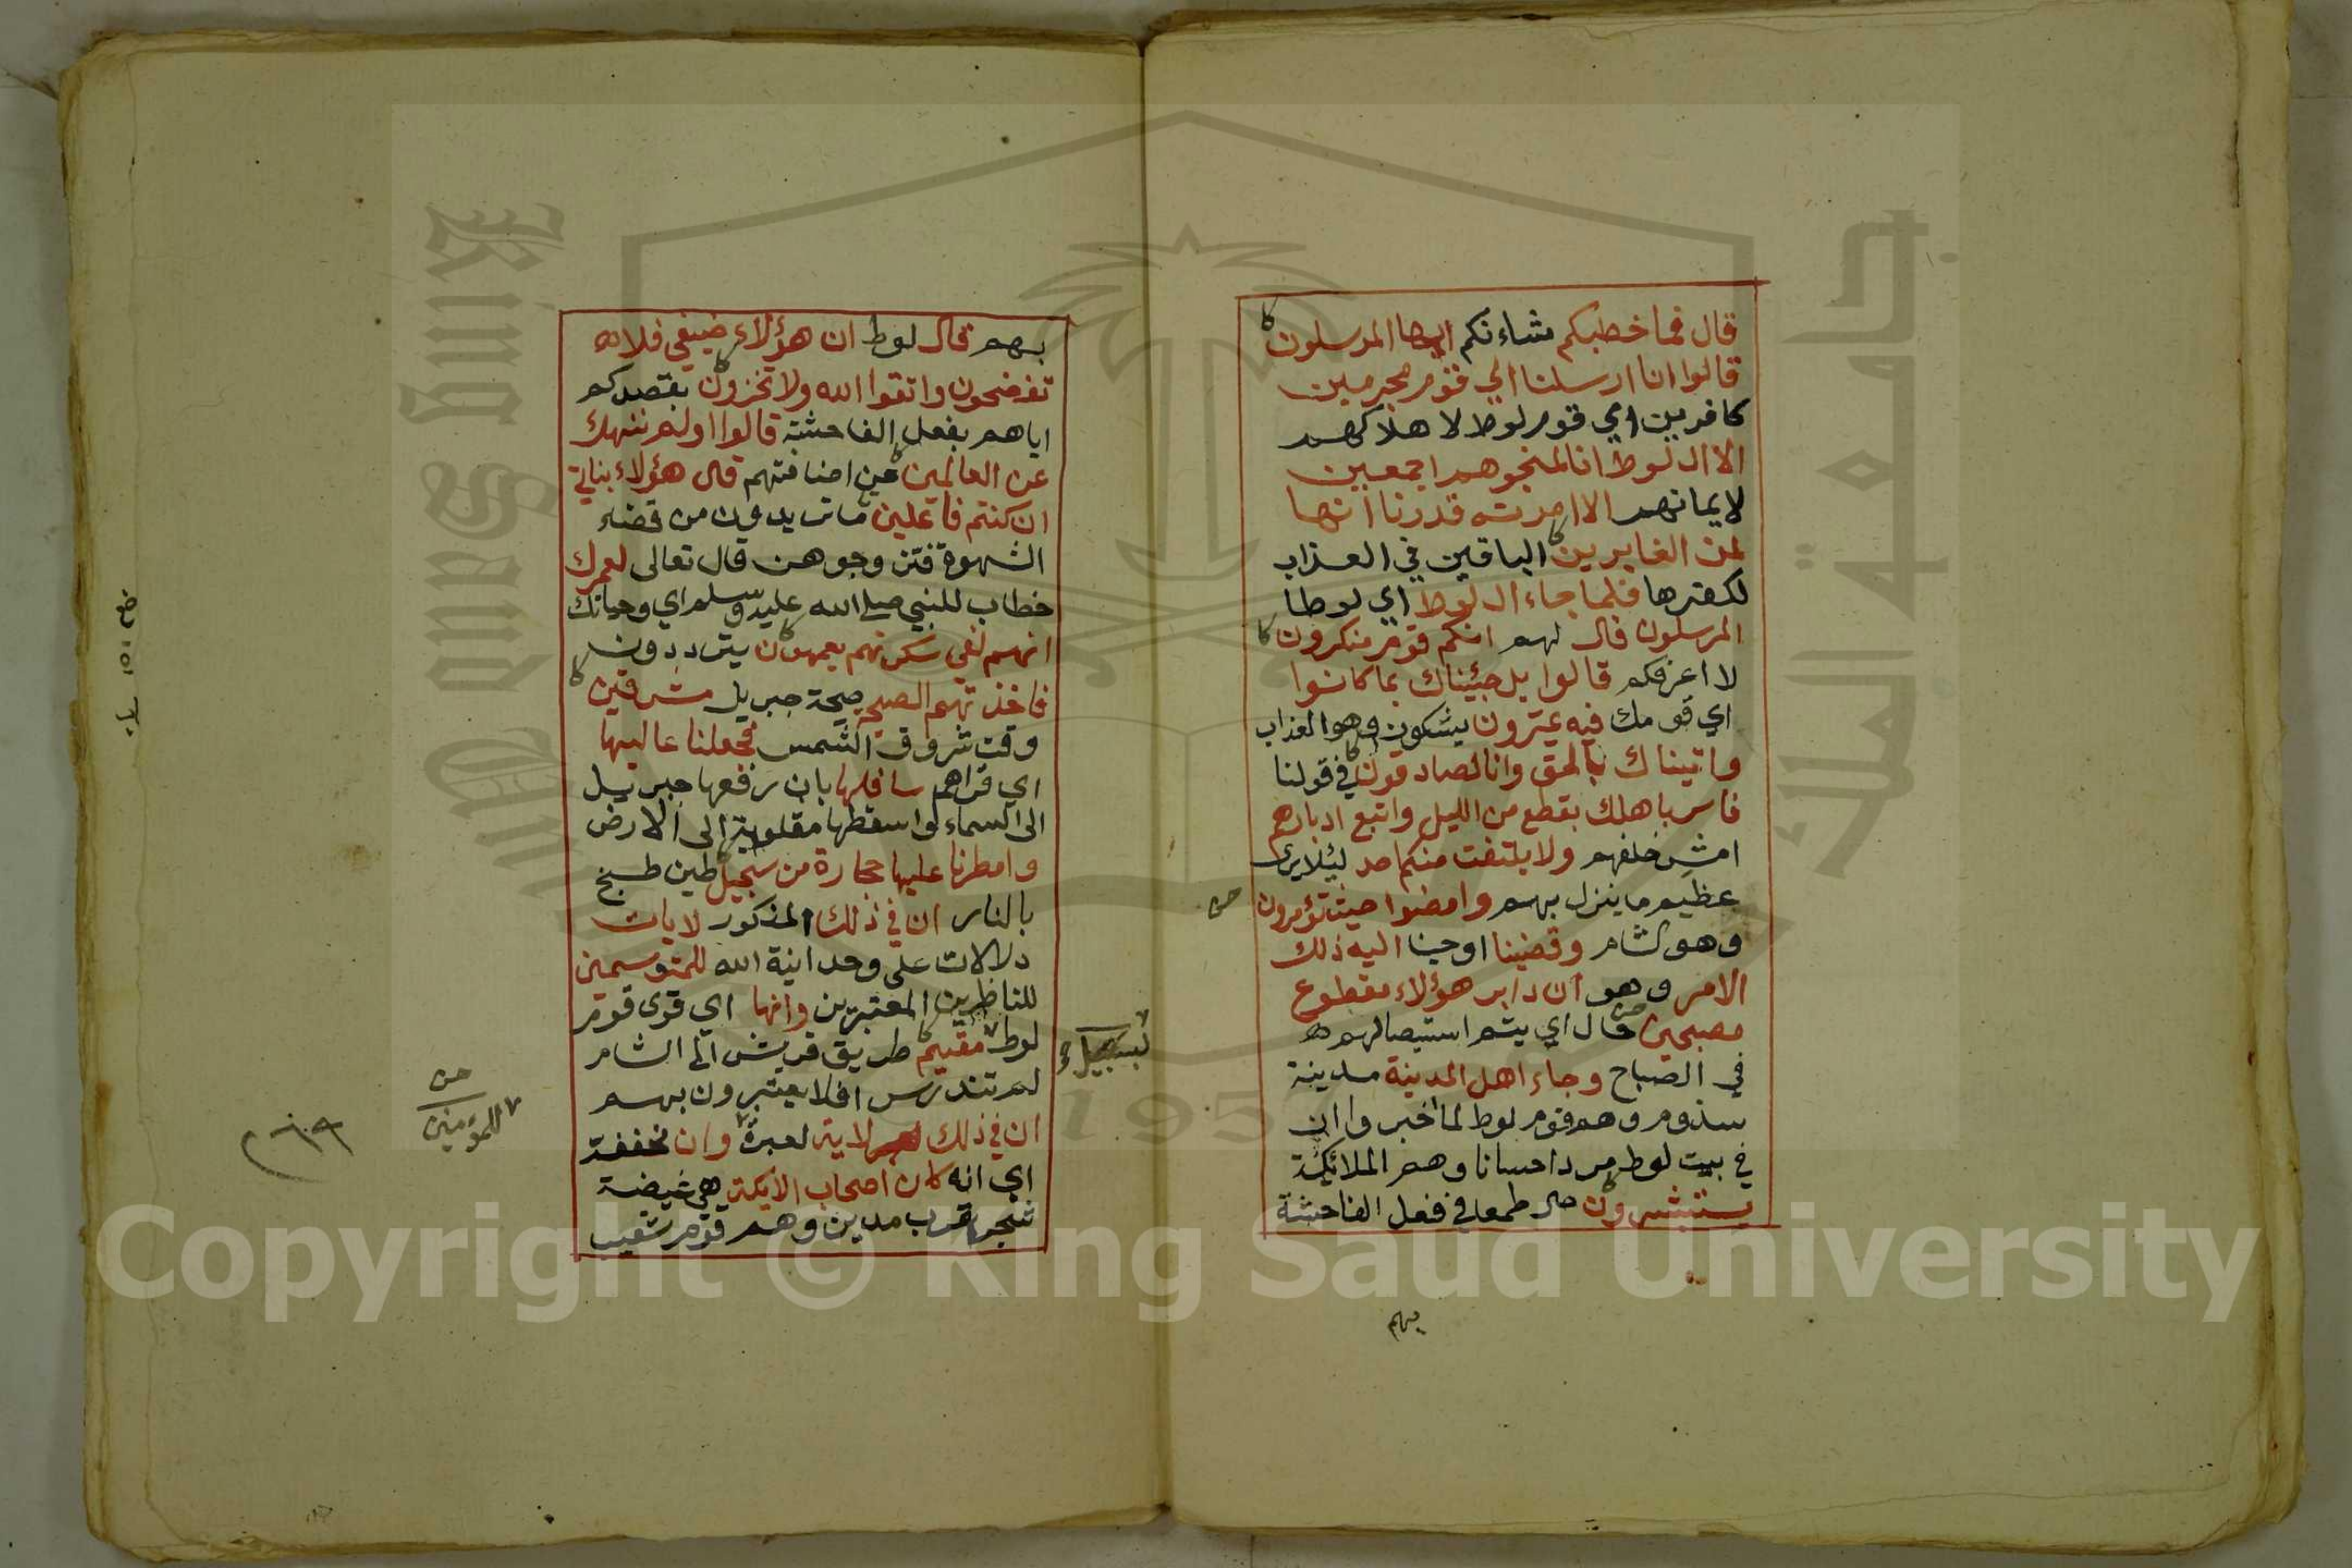 قال فما خطبكم شاءنكم ايها المرسلون
قالوا انا ارسلنا الي قوم مجرمين
كافرين اي قوم لوط لاهلاكهم
الا ال لوط انا لمنجوهم اجمعين
لايمانهم الا امرته قدرنا انها
لمن الغابرين الباقين في العذاب
لكفرها فلما جاء ال لوط اي لوطا
المرسلون قال لهم انكم قوم منكرون
لا اعرفكم قالوا بل جئيناك بما كانوا
اي قومك فيه يمترون يشكون وهو العذاب
واتيناك بالحق وانا لصادقون في قولنا
فاسر باهلك بقطع من الليل واتبع ادبارهم
امش خلفهم ولا يلتفت منكم احد ليئلا يرى
عظيم ما ينزل بهم وامضوا حيث تؤمرون
وهو الشام وقضينا اوحينا اليه ذلك
الامر وهو ان دابر هؤلاء مقطوع
مصبحين حال اي يتم استيصالهم
في الصباح وجاء اهل المدينة مدينة
سذوم وهم قوم لوط لما اخبروا ان
في بيت لوط مردا حسانا وهم الملائكة
يستبشرون حال طمعا في فعل الفاحشة
بهم
بهم قال لوط ان هؤلاء ضيفي فلا
تفضحون واتقوا الله ولا تخزون بقصدكم
اياهم بفعل الفاحشة قالوا اولم ننهك
عن العالمين عن اضافتهم قال هؤلاء بناتي
ان كنتم فاعلين ما تريدون من قضاء
الشهوة فتزوجوهن قال تعالى لعمرك
خطاب للنبي صلى الله عليه وسلم اي وحياتك
انهم لفي سكرتهم يعمهون يترددون
فاخذتهم الصيحة صيحة جبريل مشرقين
وقت شروق الشمس فجعلنا عاليها
اي قراهم سافلها بان رفعها جبريل
الى السماء واسقطها مقلوبة الى الارض
وامطرنا عليها حجارة من سجيل طين طبخ
بالنار ان في ذلك المذكور لايات
دلالات على وحدانية الله للمتوسمين
للناظرين المعتبرين وانها اي قرى قوم
لوط مقيم طريق قريش الى الشام
لبسبيل
لم تندرس افلا يعتبرون بهم
ان في ذلك لاية لعبرة وان مخففة
للمؤمنين
اي انه كان اصحاب الايكة هي غيضة
شجر بقرب مدين وهم قوم شعيب
Copyright © King Saud University
King Saud University
جامعة الملك
195